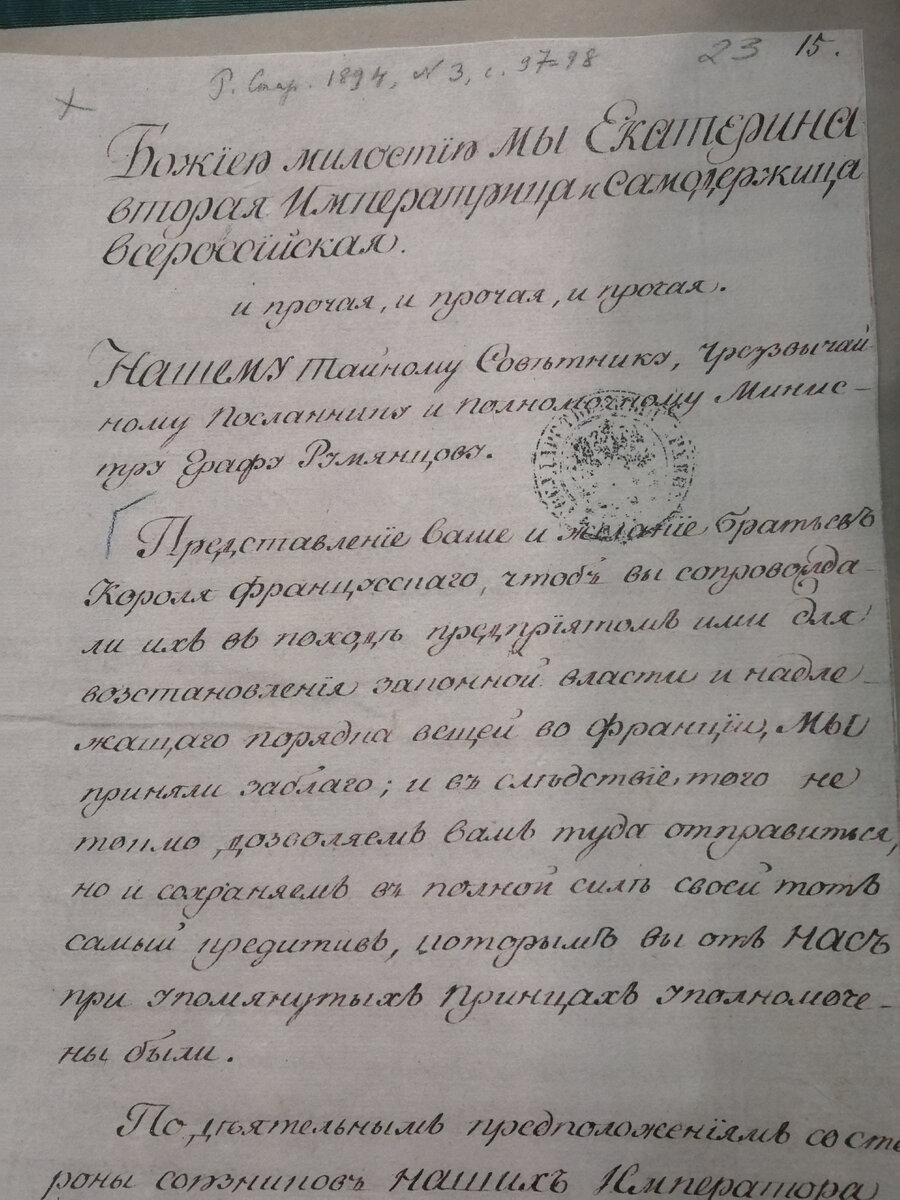 Р. Стар. 1894, N 3, с. 97-98
23 15.
Божіею милостію мы Екатерина
вторая Императрица и Самодержица
всероссійская.
и прочая, и прочая, и прочая.
Нашему Тайному Совѣтнику, Чрезвычай-
ному Посланнику и полномочному Минис-
тру Графу Румянцову.
Представленіе ваше и желаніе братьевъ
Короля французскаго, чтобъ вы сопровожда-
ли ихъ въ походѣ предпріятомъ ими для
возстановленія законной власти и надле-
жащаго порядка вещей во франціи, мы
приняли заблаго; и въ слѣдствіе того не
токмо дозволяемъ вамъ туда отправиться,
но и сохраняемъ въ полной силѣ своей тотъ
самый кредитивъ, которымъ вы отъ насъ
при упомянутыхъ Принцахъ уполномоче-
ны были.
По дѣятельнымъ предположеніямъ со сто
роны союзниковъ нашихъ Императора